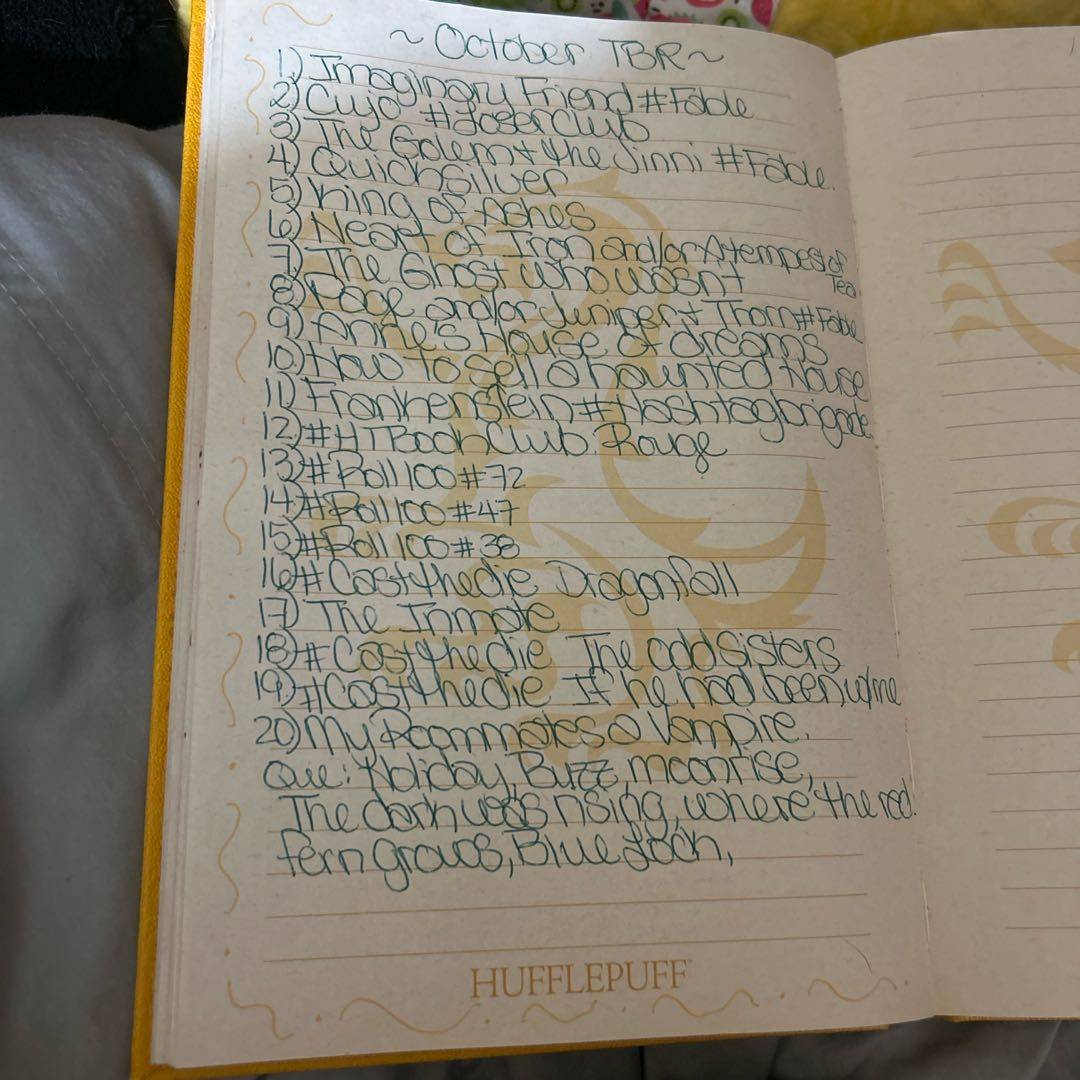 ~ October TBR ~
1) Imaginary Friend #Fable
2) Cujo #LoserClub
3) The Golem + the Jinni #Fable.
4) Quicksilver
5) King of Ashes
6) Heart of Iron and/or A tempest of Tea
7) The Ghost who wasn't
8) Rage and/or Juniper + Thorn #Fable
9) Anne's house of dreams
10) How to sell a haunted house
11) Frankenstein #Hashtagbrigade
12) #HTBookClub Rouge
13) #Roll100 #72
14) #Roll100 #47
15) #Roll100 #38
16) #Castthedie Dragonfall
17) The Inmate
18) #Castthedie The odd sisters
19) #Castthedie If he had been w/me
20) My Roommates a Vampire.
Que: Holiday, Buzz, moonrise,
The dark was rising, where the red
fern grows, Blue Loch,
HUFFLEPUFF